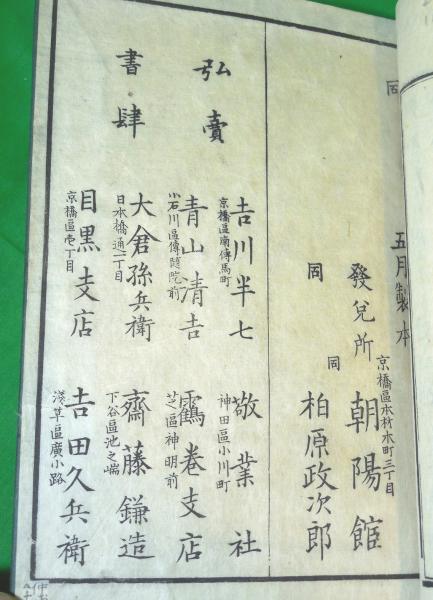 同
五月製本
發兌所
京橋區本材木町三丁目
朝陽館
同
同
柏原政次郎
弘賣
書肆
京橋區南傳馬町
吉川半七
神田區小川町
敬業社
小石川區傳通院前
青山清吉
芝區神明前
靏卷支店
日本橋通一丁目
大倉孫兵衛
下谷區池之端
齋藤鎌造
京橋區壱丁目
目黒支店
淺草區廣小路
吉田久兵衛